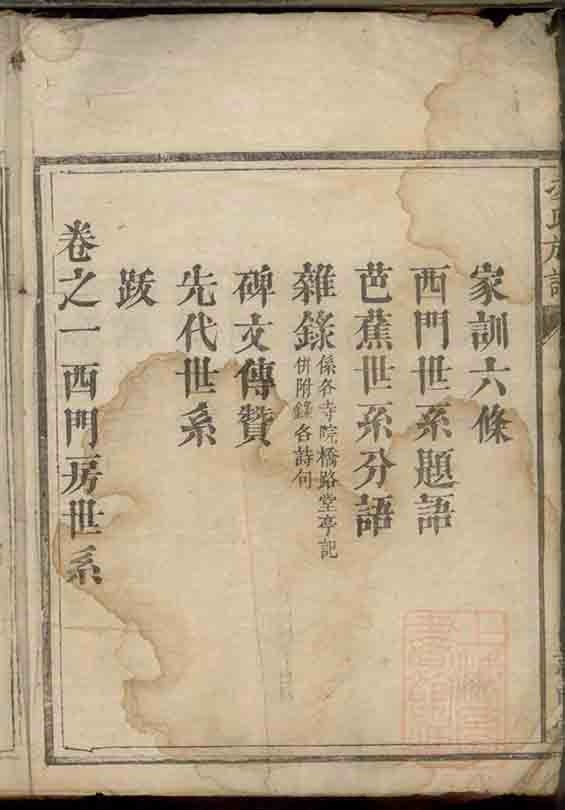 氏族譜
家訓六條
西門世系題語
芭蕉世系分語
雜錄係各寺院橋路堂亭記
併附錄各詩句
碑文傳贊
先代世系
跋
卷之一西門房世系